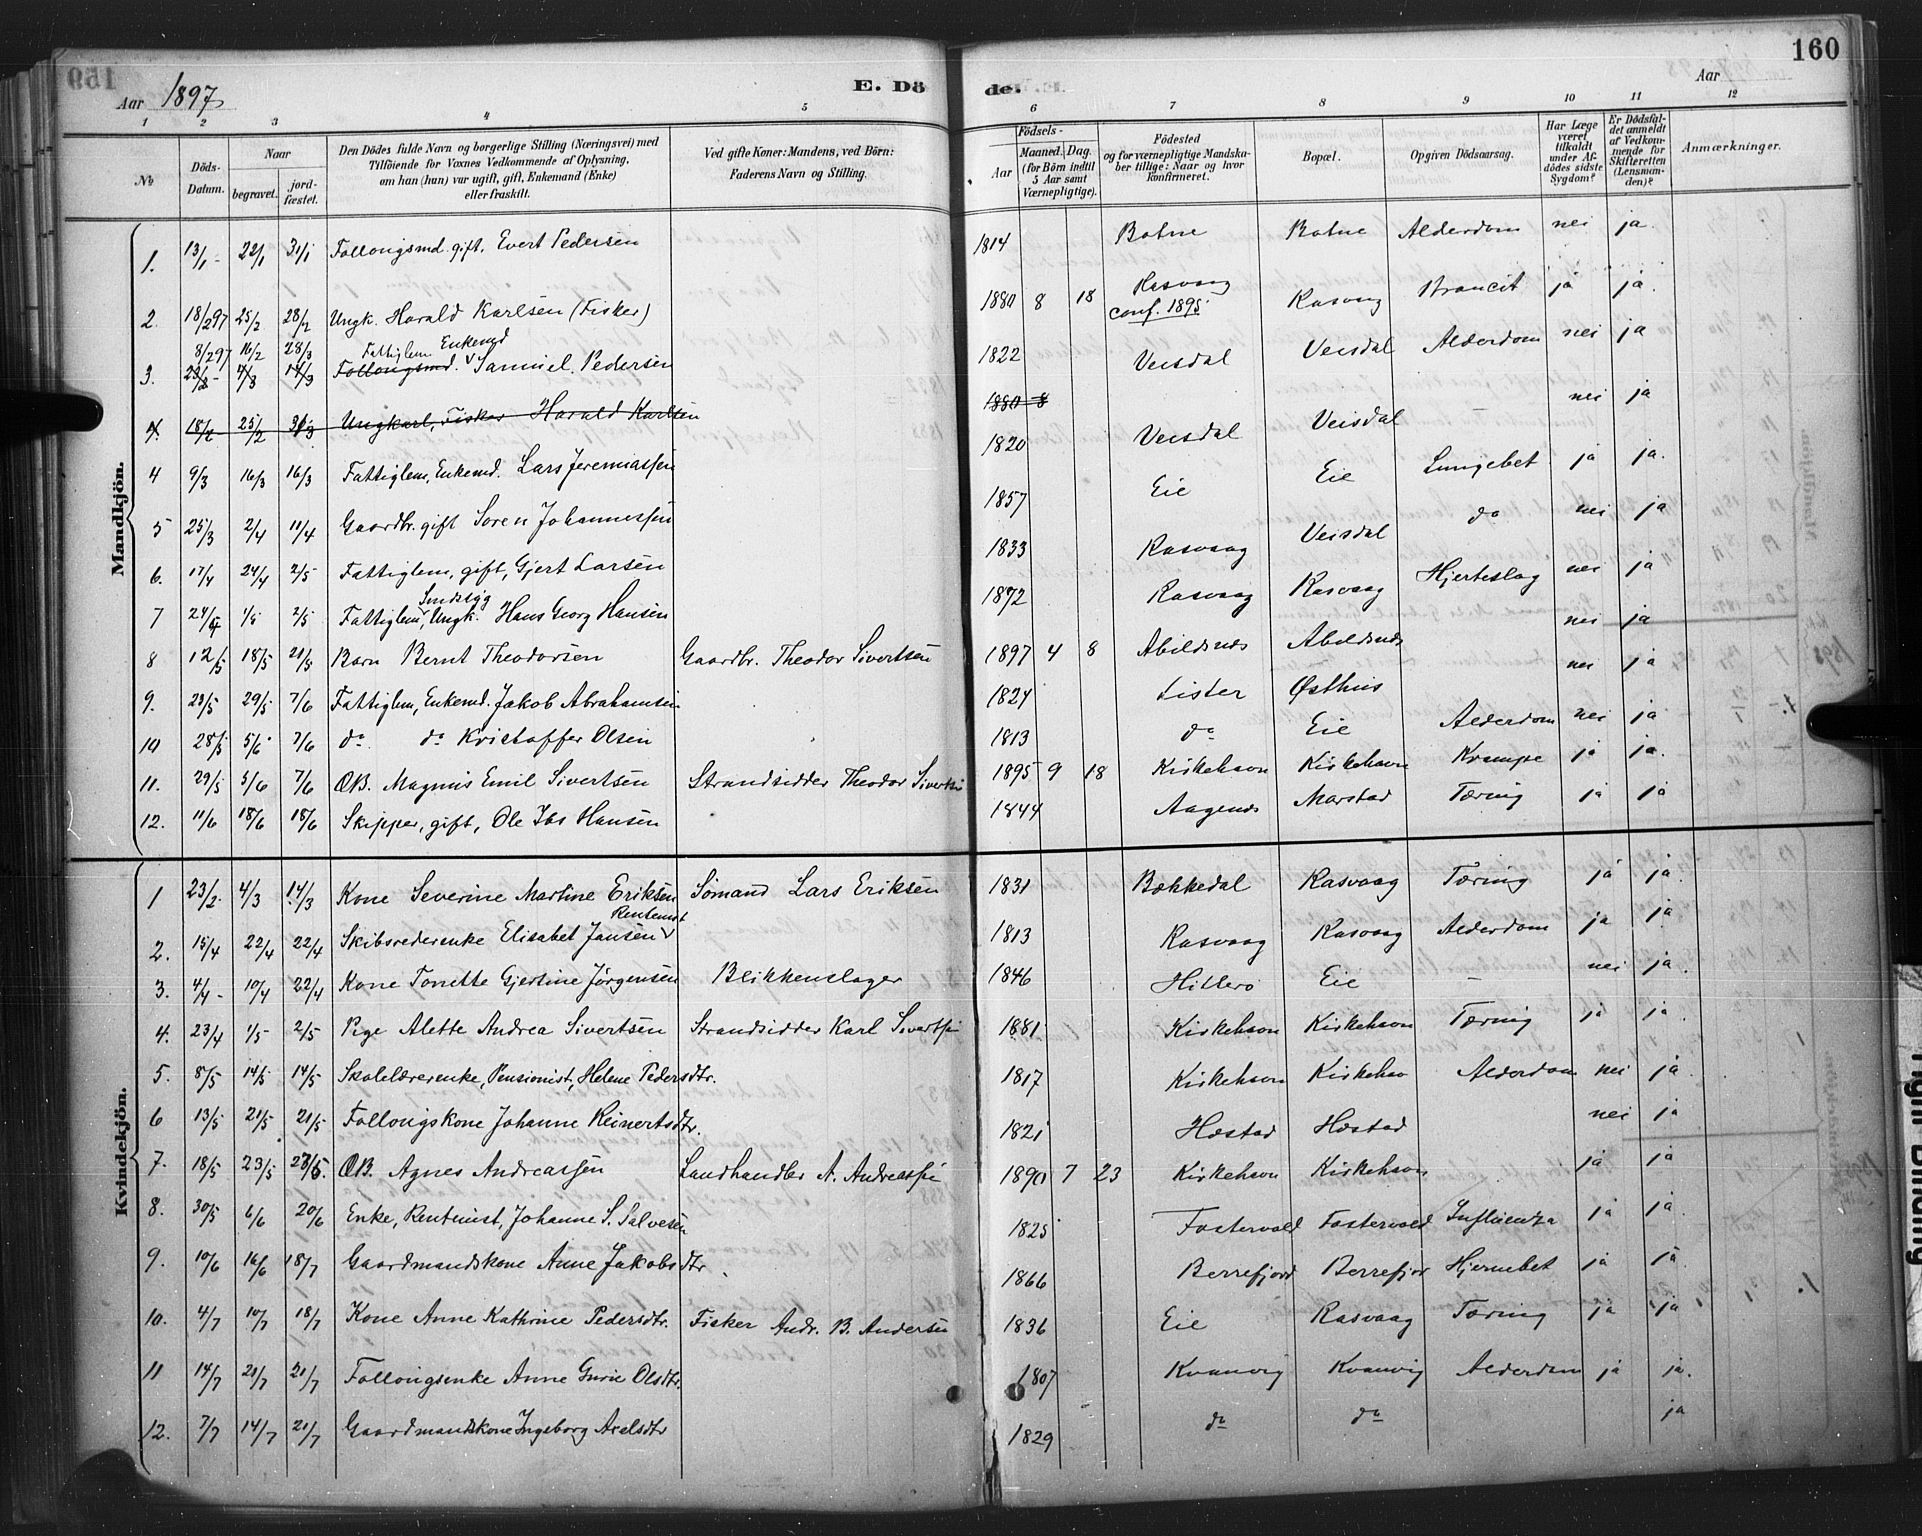 159
160
Aar 1897
E. Døde.
Aar
1 2 3 4 5 6 7 8 9 10 11 12
No
Døds-Datum.
Naar
begravet.
jordfæstet.
Den Dødes fulde Navn og borgerlige Stilling (Næringsvei) med
Tilføiende for Voxnes Vedkommende af Oplysning,
om han (hun) var ugift, gift, Enkemand (Enke)
eller fraskilt.
Ved gifte Koner: Mandens, ved Børn:
Faderens Navn og Stilling.
Fødsels-
Aar
Maaned. Dag.
(for Børn indtil
5 Aar samt
Værnepligtige).
Fødested
og for værnepligtige Mandskaber tillige: Naar og hvor
konfirmeret.
Bopæl.
Opgiven Dødsaarsag.
Har Læge
været
tilkaldt
under Afdødes sidste
Sygdom?
Er Dødsfaldet anmeldt
af Vedkommende for
Skifteretten
(Lensmanden)?
Anmærkninger.
Mandkjøn.
1. 13/1 22/1 31/1 Follougsmd. gift. Evert Pedersen 1814 Botne Botne Alderdom nei ja.
2. 18/2 97 25/2 28/2 Ungk. Harald Karlsen (Fisker) 1880 8 18 Rasvaag conf. 1895 Rasvaag Strancit ja ja.
8/2 97 16/2 28/3 Fattiglem Enkemd
3. 23/2 4/3 14/3 Follougsmd. Samuel Pedersen 1822 Veisdal Veisdal Alderdom nei ja
4 18/2 25/2 Ungkarl, Fisker Harald Karlsen 1880 8
4 9/3 16/3 16/3 Fattiglem, Enkemd. Lars Jeremiassen 1820 Veisdal Veisdal – nei ja
5 25/3 2/4 11/4 Gaardbr. gift Søren Johannessen 1857 Eie Eie Lungebet ja ja.
6. 17/4 24/4 2/5 Fattiglem, gift, Gjert Larsen 1833 Rasvaag Veisdal do nei ja
7 24/4 1/5 2/5 Fattiglem, Sindssyg Ungk. Hans Georg Hansen 1872 Rasvaag Rasvaag Hjerteslag nei ja
8 12/5 18/5 21/5 Barn Bernt Theodorsen Gaardbr. Theodor Sivertsen 1897 4 8 Abildsnæs Abildsnæs nei ja
9. 23/5 29/5 7/6 Fattiglem, Enkemd. Jakob Abrahamsen 1824 Lister Østhus nei ja
10 28/5 5/6 7/6 do do Kristoffer Olsen 1813 do Eie Alderdom nei ja
11. 29/5 5/6 7/6 ØB. Magnus Emil Sivertsen Strandsidder Theodor Sivertsen 1895 9 18 Kirkehavn Kirkehavn Krampe ja ja.
12. 11/6 18/6 18/6 Skipper, gift, Ole Ibs Hansen 1844 Aagenæs Marstad Tæring ja ja
Kvindekjøn.
1 23/2 4/3 14/3 Kone Severine Martine Eriksen Sømand Lars Eriksen 1831 Bækkedal Rasvaag Tæring ja ja.
2. 15/4 22/4 22/4 Skibsrederenke Elisabet Jansen Rentenist 1813 Rasvaag Rasvaag Alderdom ja ja
3. 4/4 10/4 22/4 Kone Tonette Gjertine Jørgensen Blikkenslager 1846 Hitterø Eie – nei ja.
4. 23/4 1/5 2/5 Pige Alette Andrea Sivertsen Strandsidder Karl Sivertsen 1881 Kirkehavn Kirkehavn Tæring ja ja.
5. 8/5 14/5 14/5 Skolelærerenke, Pensionist, Helene Pedersdtr. 1817 Kirkehavn Kirkehav Alderdom nei ja
6 13/5 21/5 21/5 Follougskone Johanne Reinertsdtr. 1821 Hæstad Hæstad nei ja
7. 18/5 23/5 23/5. ØB. Agnes Andreassen Landhandler A. Andreassen 1890 7 23 Kirkehavn Kirkehavn ja ja
8. 30/5 6/6 20/6 Enke, Rentenist, Johanne S. Salvesen 1825 Fostervold Fostervold Influenza ja ja.
9. 10/6 16/6 18/7 Gaardmandskone Anne Jakobsdtr. 1866 Berrefjord Berrefjor Hjernebet ja ja
10. 4/7 10/7 18/7 Kone Anne Kathrine Pedersdtr. Fisker Andr. B. Andersen 1836 Eie Rasvaag Tæring ja ja
11 14/7 21/7 21/7 Follougsenke Anne Gurie Olsdtr. 1807 Kvanvig Kvanvig Alderdom ja ja.
12. 7/7 14/7 21/7 Gaardmandskone Ingeborg Axelsdtr 1829 do do ja
Tight Binding